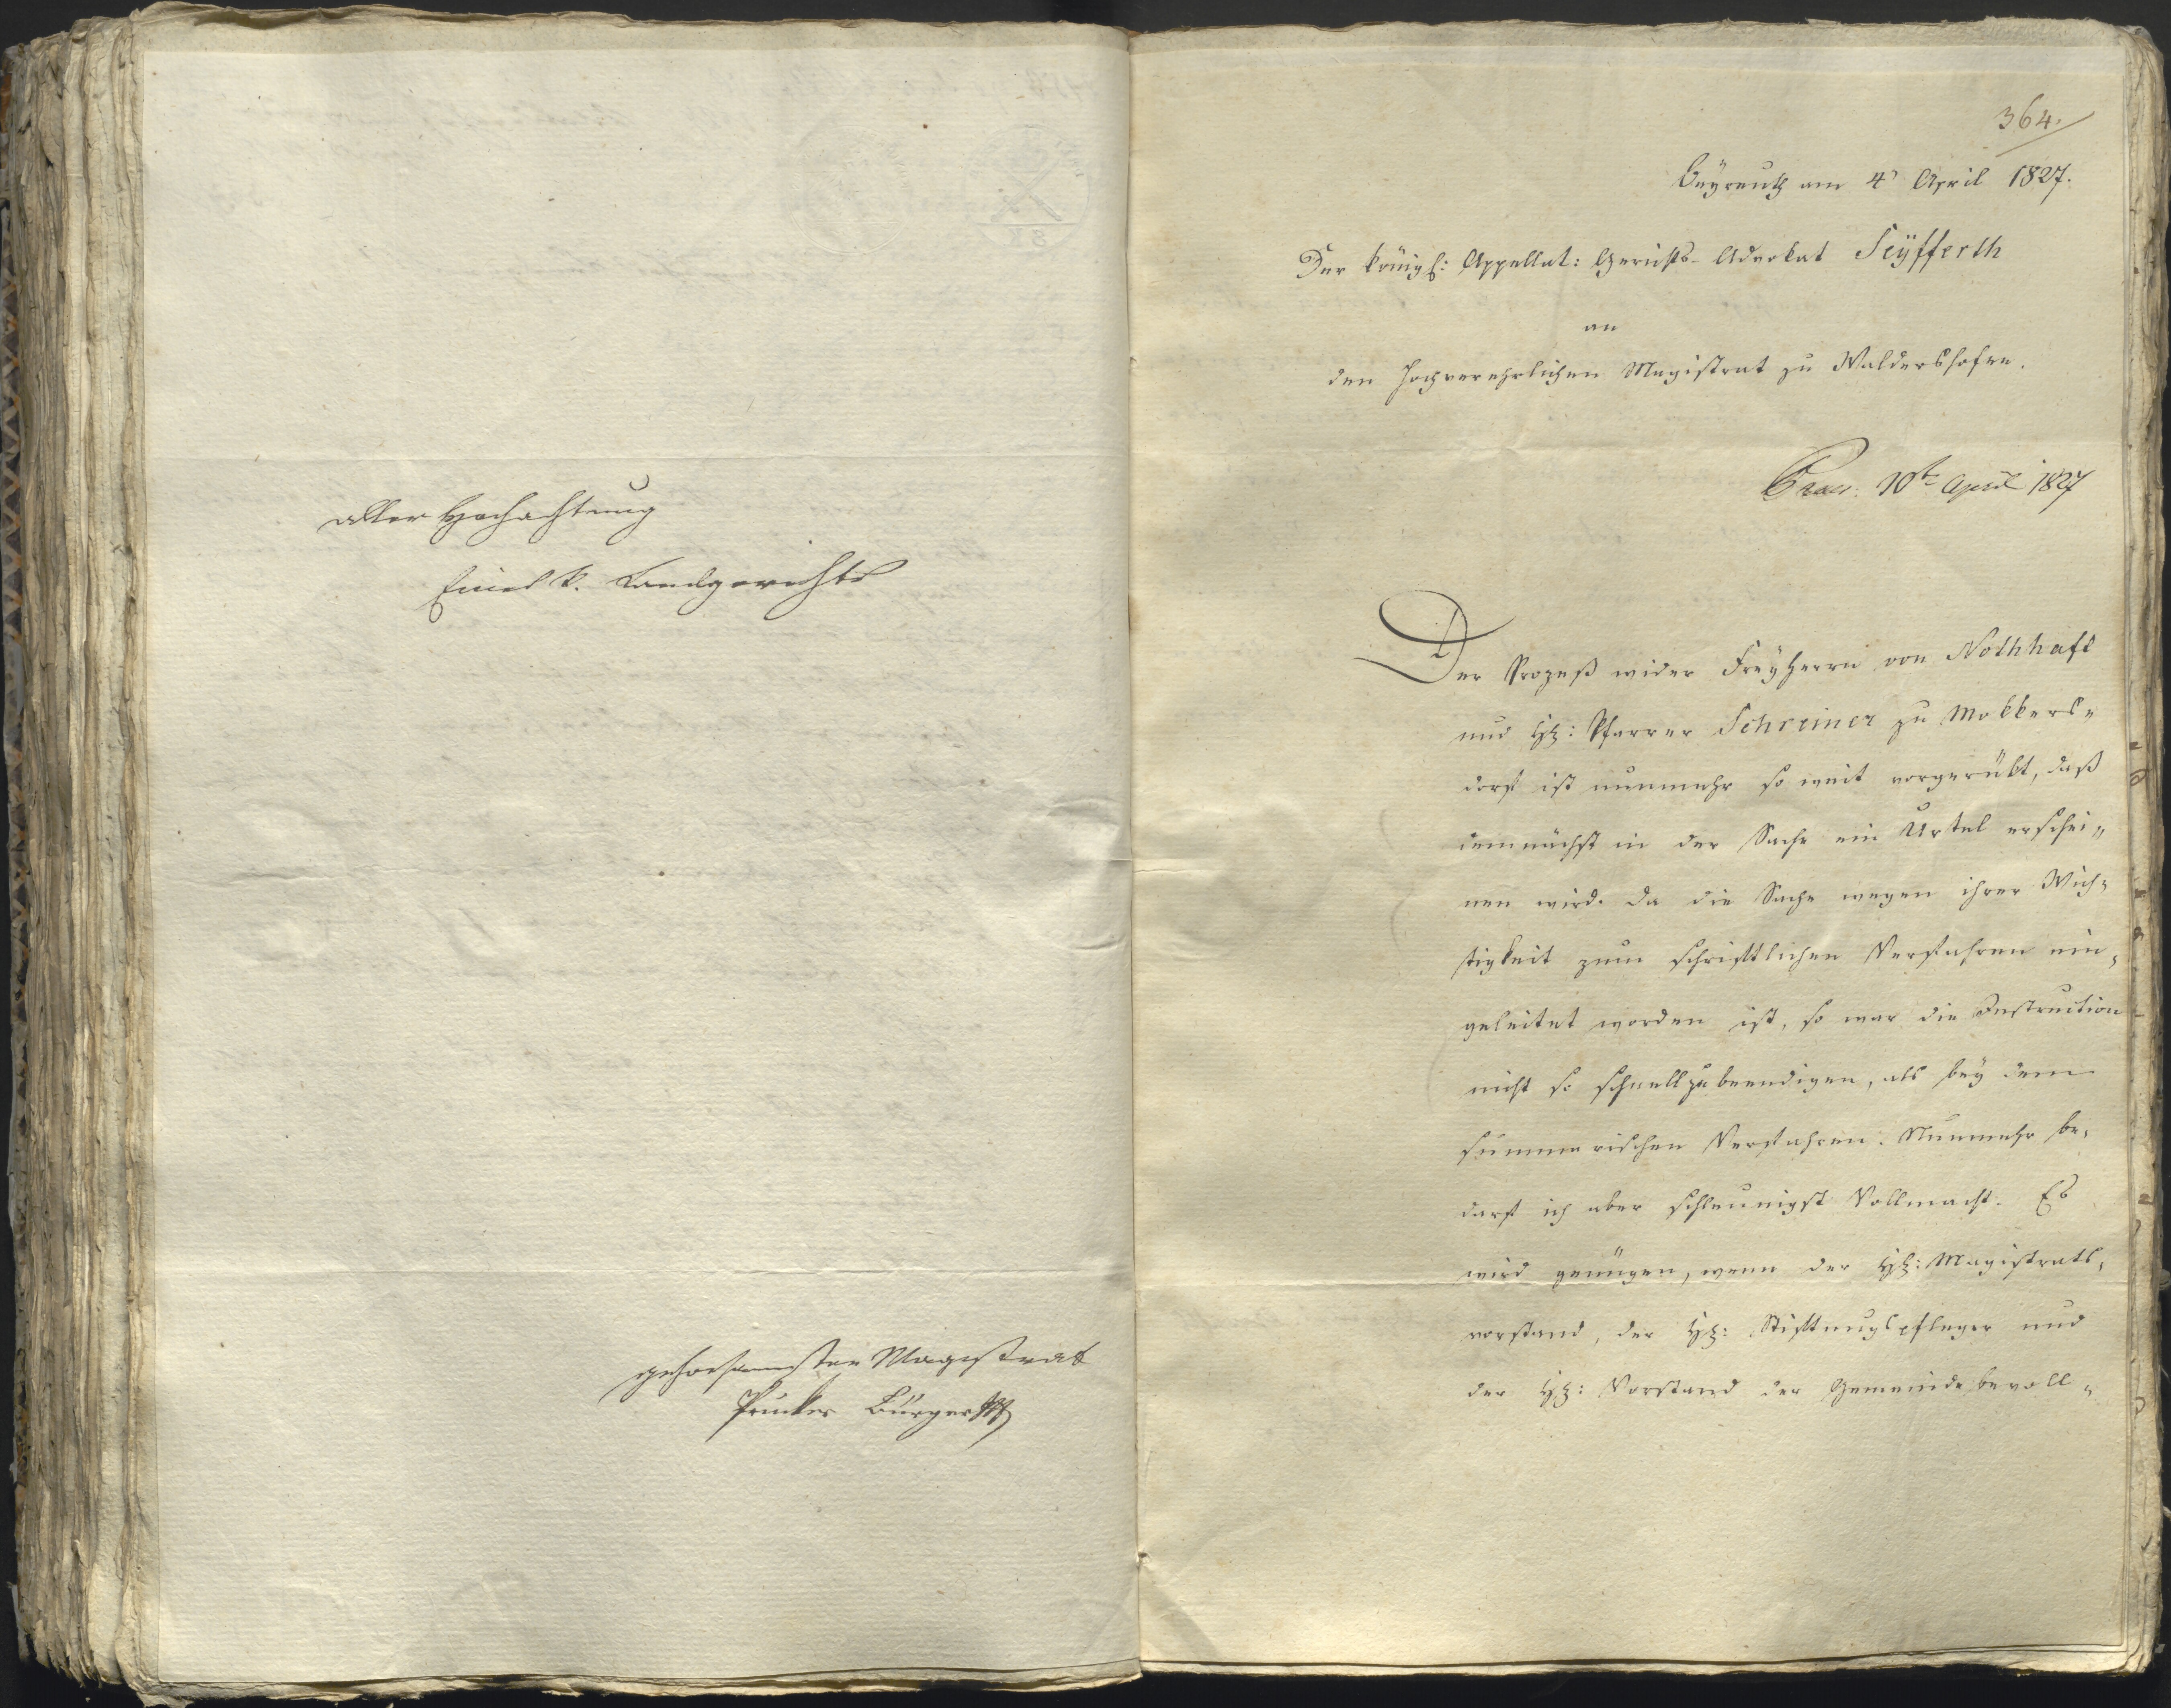 aller Hochachtung
Eines k. Landgerichts
gehorsamster Magistrat
Prucker Bürgerm
364.
Bayreuth am 4 April 1827.
Der königl: Appellat: Gerichts-Advokat Seÿfferth
an
den hochverehrlichen Magistrat zu Waldershofen.
Praes: 10t April 1827
Der Prozeß wider Freÿherrn von Nothhaft
und H: Pfarrer Schreiner zu Mokkers„
dorf ist nunmehr so weit vorgerükt, daß
demnächst in der Sache ein Urtel erschei„
nen wird. Da die Sache wegen ihrer Wich„
tigkeit zum schriftlichen Verfahren ein„
geleitet worden ist, so war die Instruction
nicht so schnell zu beendigen, als beÿ dem
summarischen Verfahren. Nunmehr be„
darf ich aber schleunigst Vollmacht. Es
wird genügen, wenn der H: Magistrats„
vorstand, der H: Stiftungspfleger und
der H: Vorstand der Gemeindebevoll„